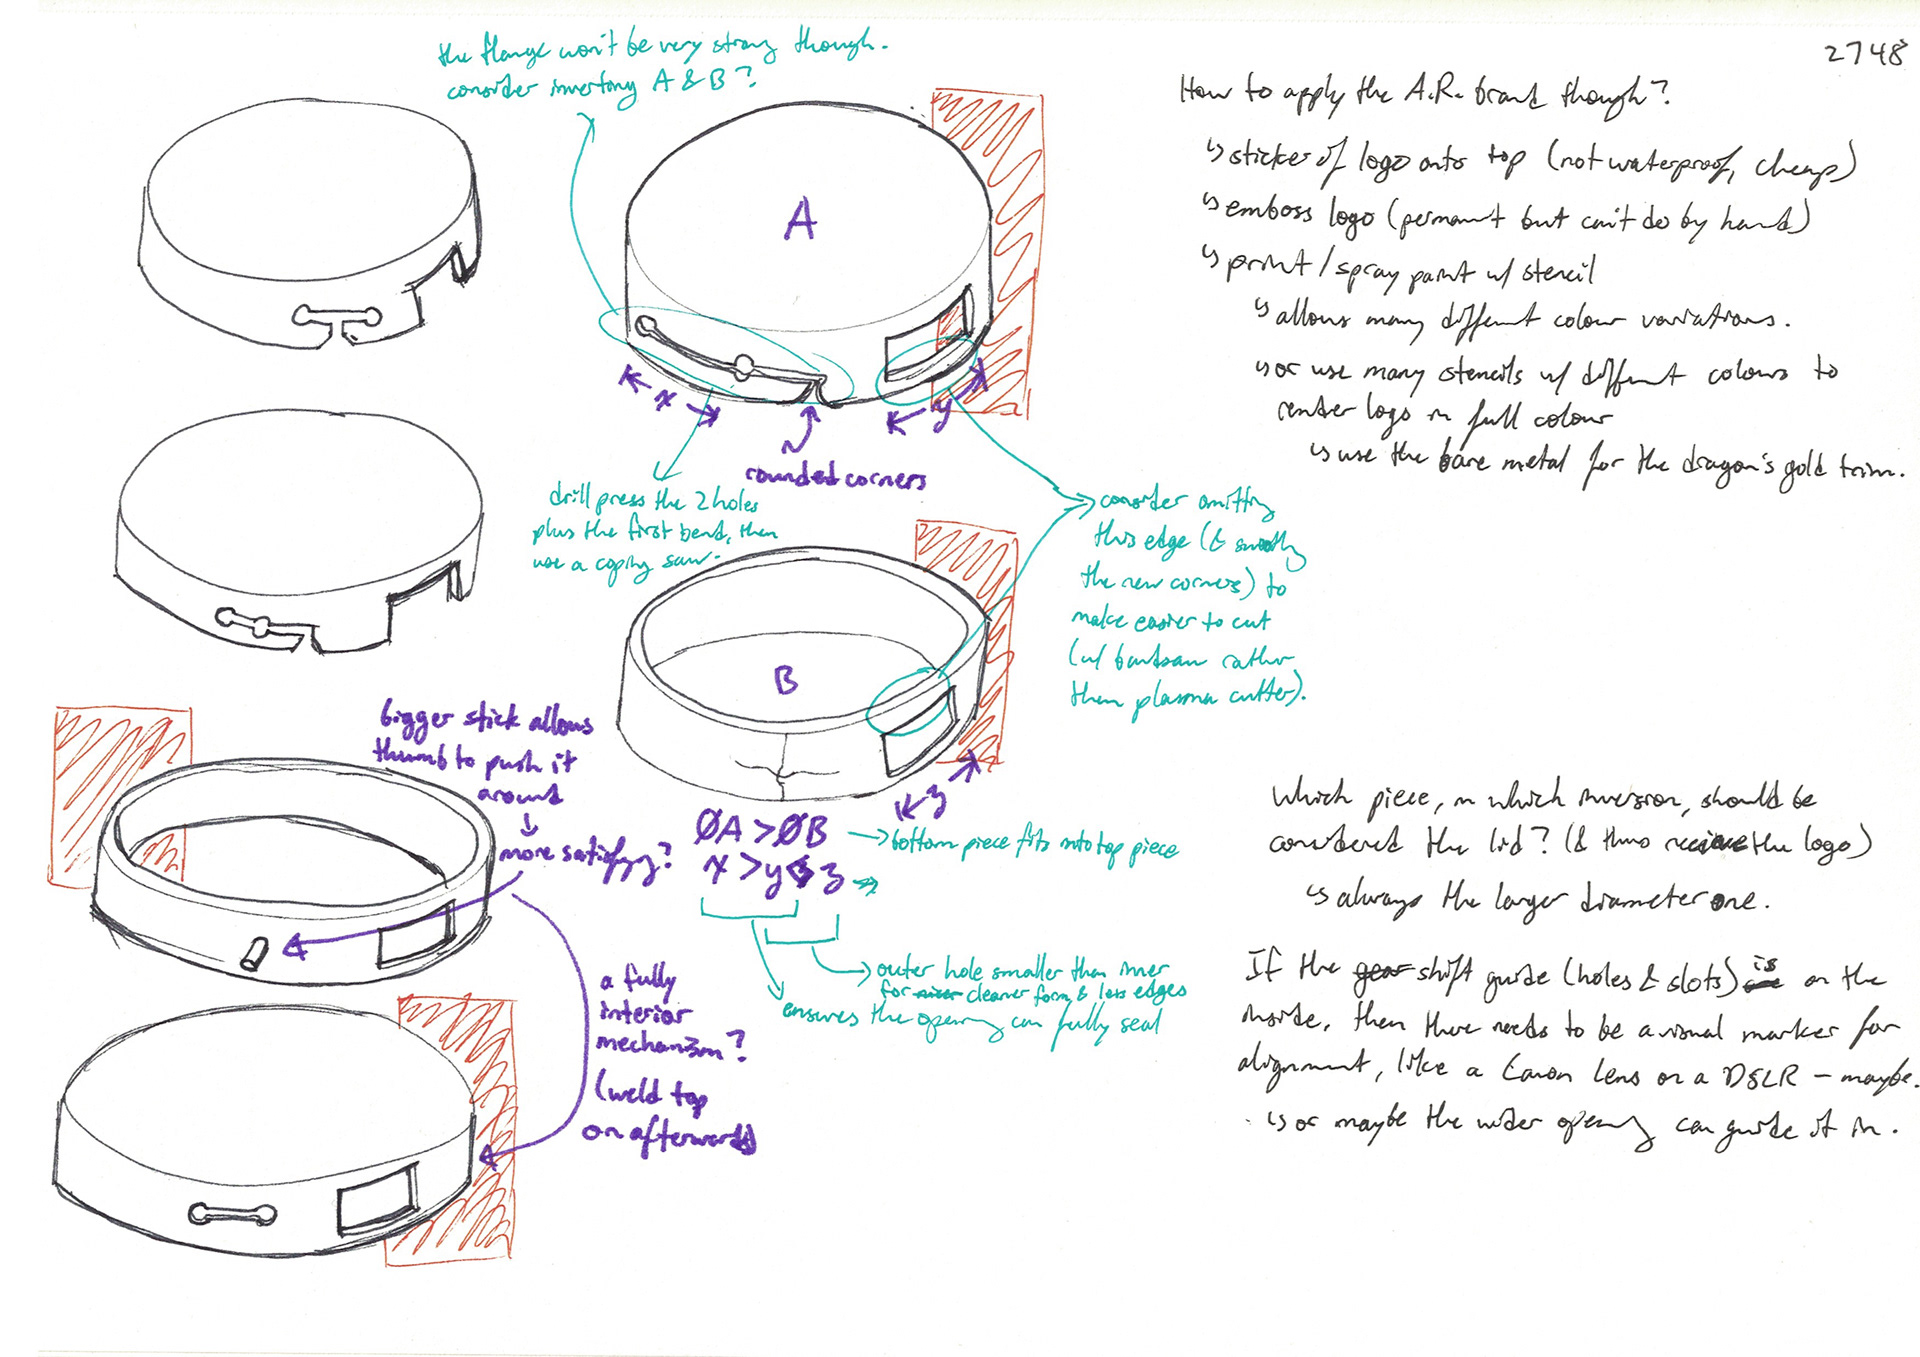 2748
the flange won't be very strong though.
consider inverting A & B?
A
x
y
rounded corners
drill press the 2 holes
plus the first bend, then
use a coping saw.
consider omitting
this edge (& smooth
the new corners) to
make easier to cut
(w/ bandsaw rather
then plasma cutter).
B
z
ØA > ØB
bottom piece fits into top piece
x > y < z
outer hole smaller than inner
for nicer cleaner form & less edges
ensures the opening can fully seal
bigger stick allows
thumb to push it
around
more satisfyg?
a fully
interior
mechanism?
(weld top
on afterwards)
How to apply the A.R. brand though?
↳ sticker of logo onto top (not waterproof, cheap)
↳ emboss logo (permanent but can't do by hand)
↳ print / spray paint w/ stencil
↳ allows many different colour variations.
↳ or use many stencils w/ different colours to
render logo in full colour
↳ use the bare metal for the dragon's gold trim.
Which piece, in which inversion, should be
considered the lid? (& thus receive the logo)
↳ always the larger diameter one.
If the gear shift guide (holes & slots) is on the
inside, then there needs to be a visual marker for
alignment, like a Canon lens on a DSLR – maybe.
↳ or maybe the wider opening can guide it in.